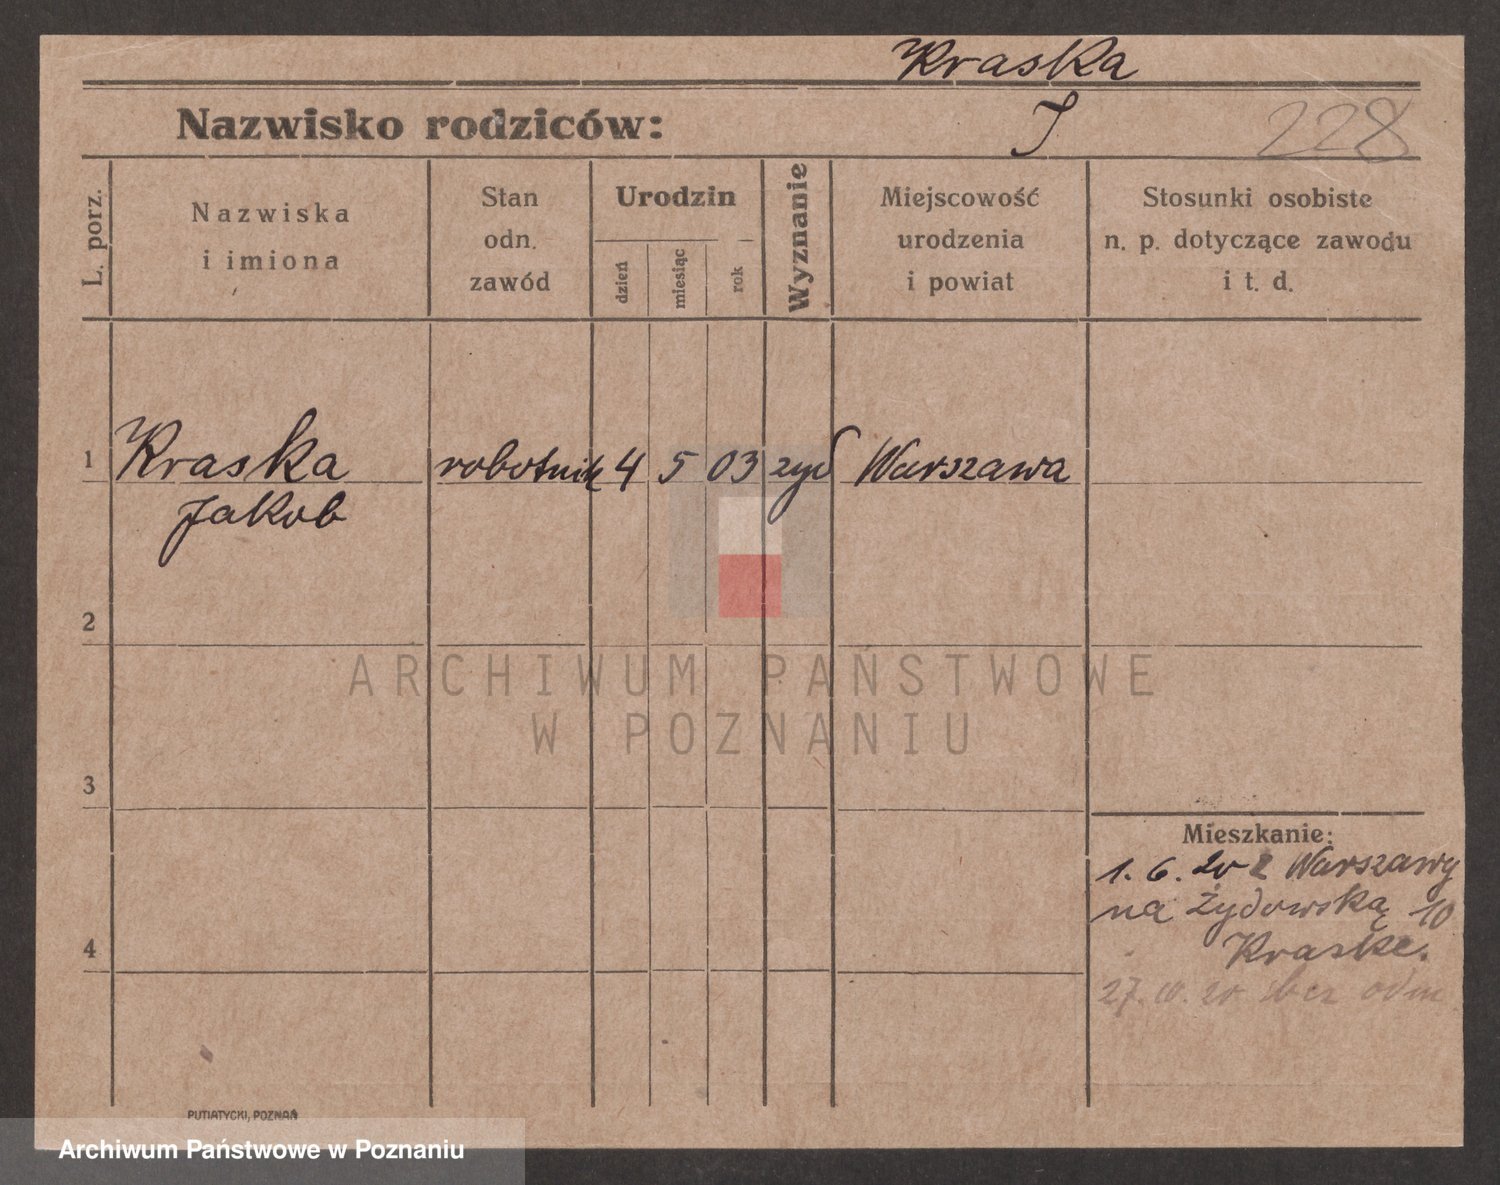 Kraska
Nazwisko rodziców:
J
228
L. porz.
Nazwiska
i imiona
Stan
odn.
zawód
Urodzin
dzień
miesiąc
rok
Wyznanie
Miejscowość
urodzenia
i powiat
Stosunki osobiste
n. p. dotyczące zawodu
i t. d.
1 Kraska robotnik 4 5 03 żyd Warszawa
Jakob
2
3
4
Mieszkanie:
1. 6. 20 z Warszawy
na Żydowską 10
Kraske.
27. 10. 20 bez odm
ARCHIWUM PAŃSTWOWE
W POZNANIU
PUTIATYCKI, POZNAŃ
Archiwum Państwowe w Poznaniu